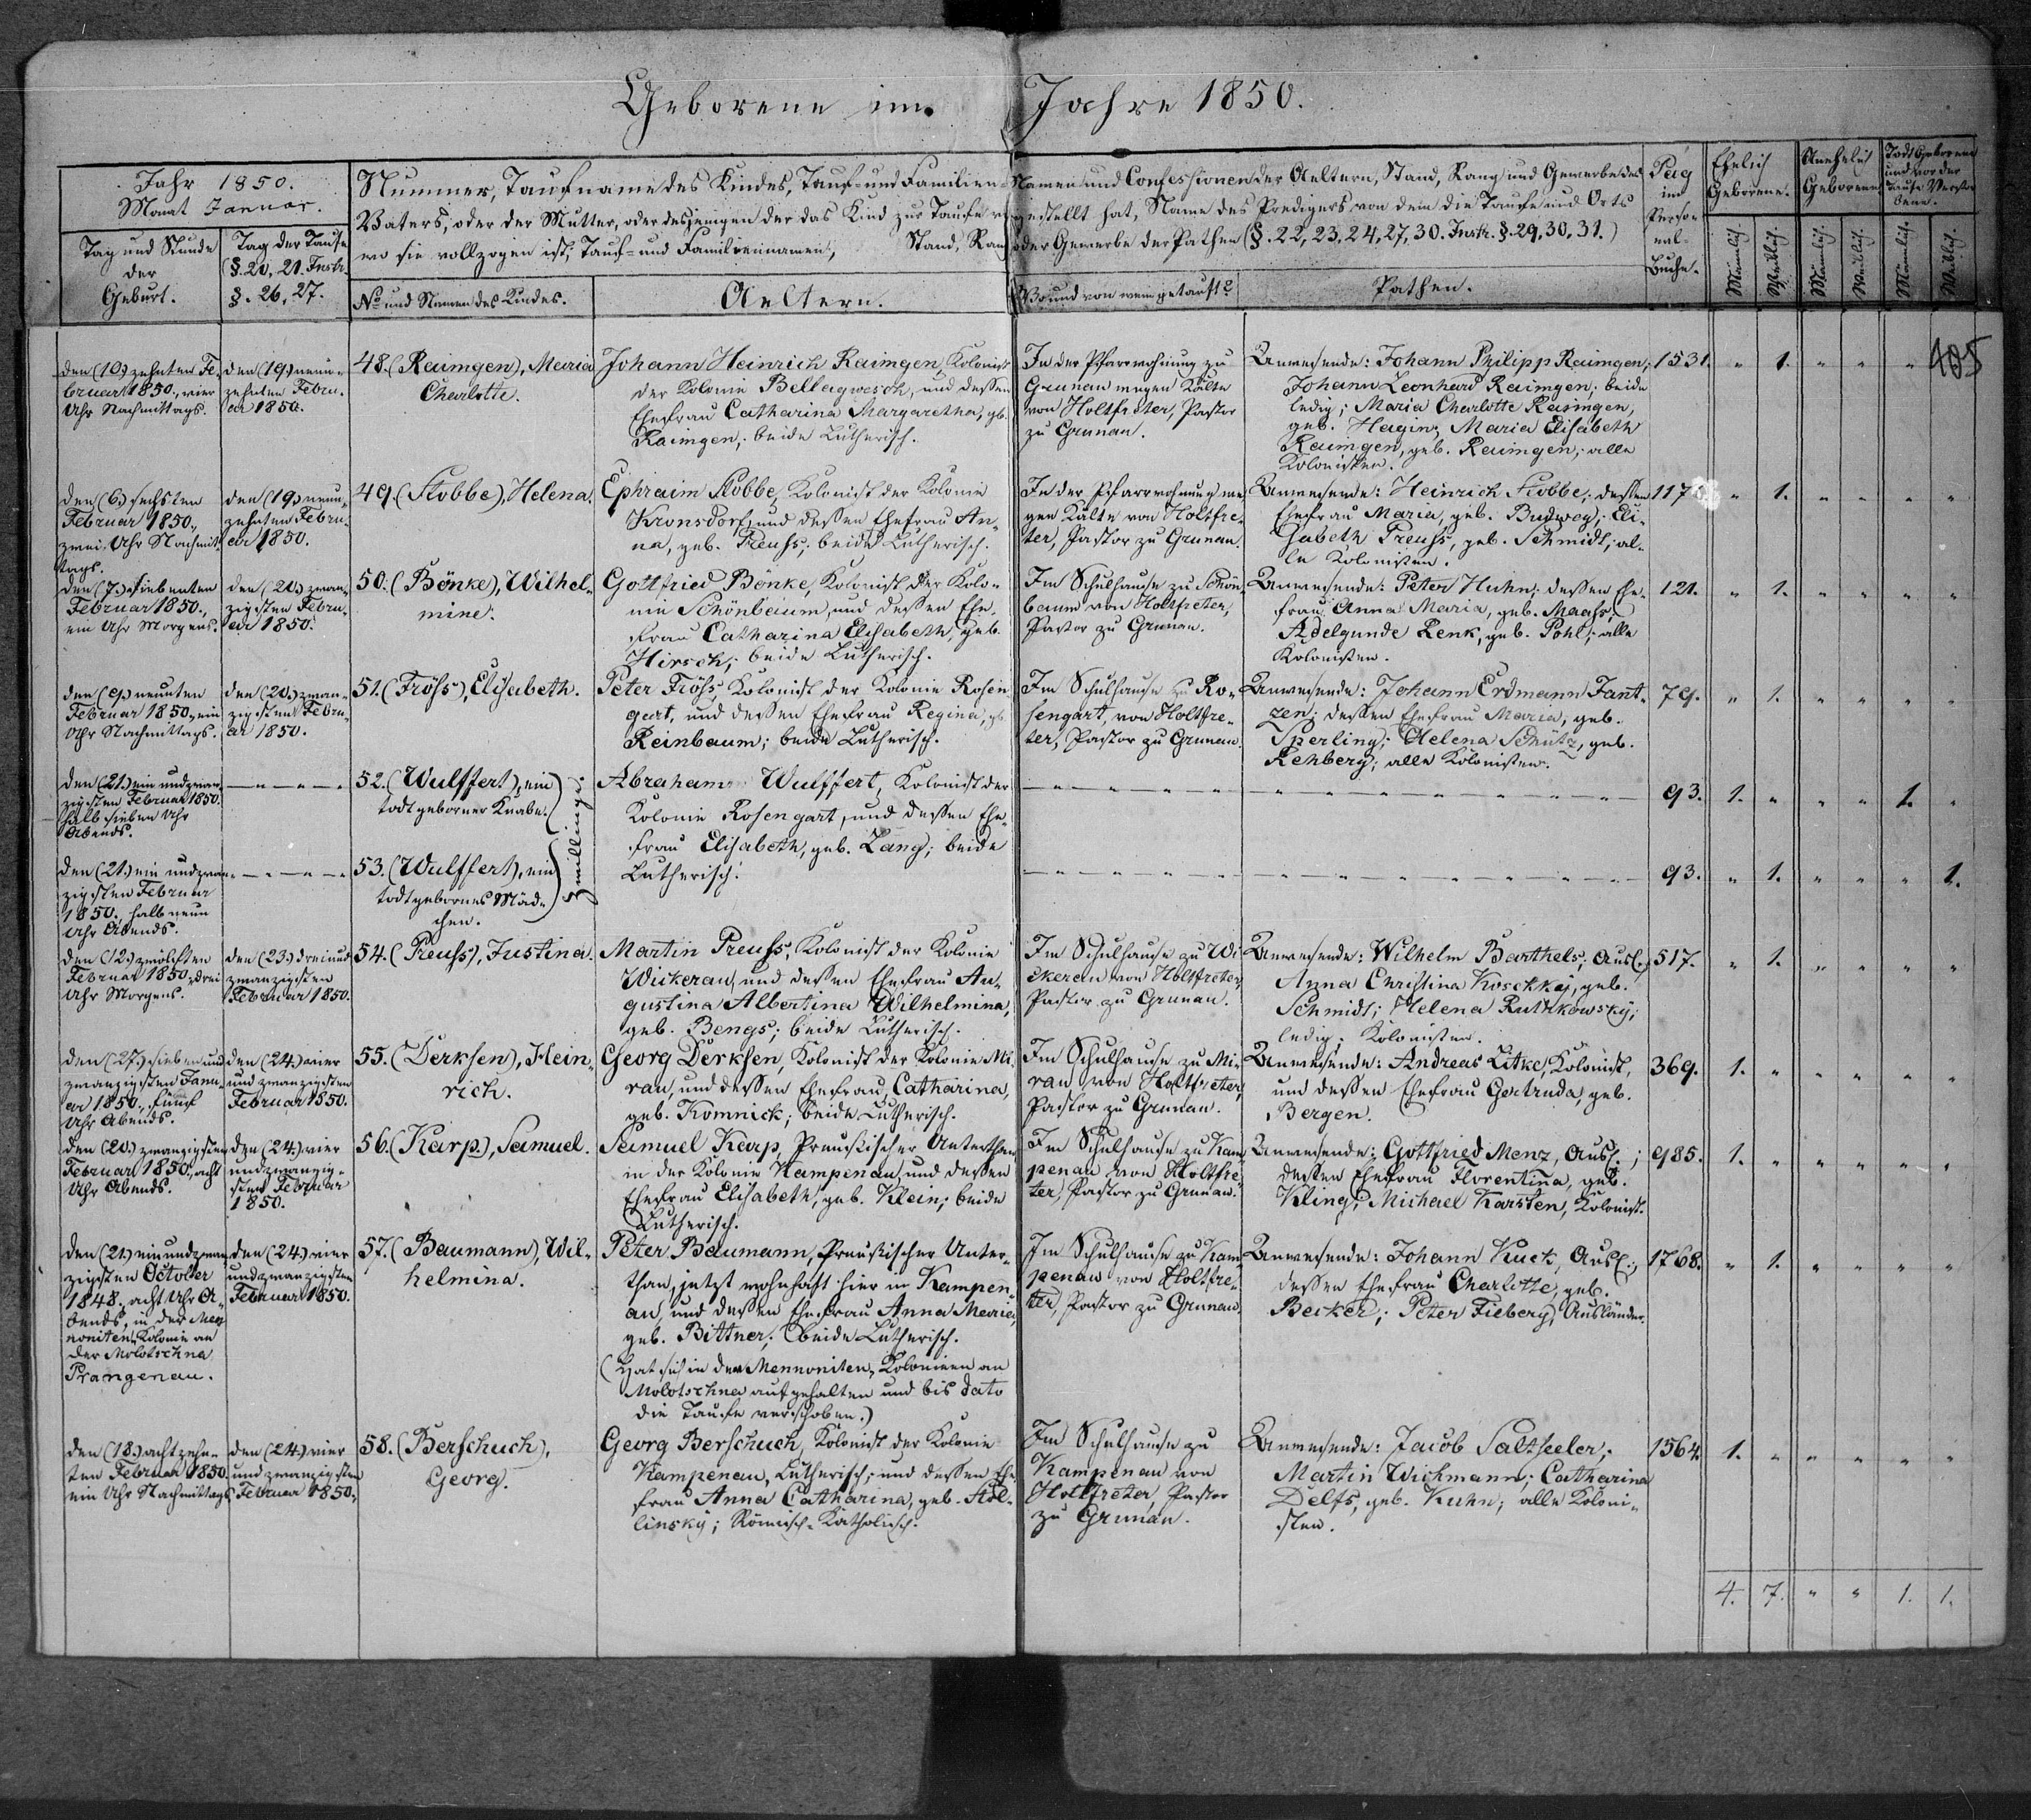 Geborene im Jahre 1850.
405
Jahr 1850.
Monat Januar.
Tag und Stunde
der
Geburt.
Tag der Taufe
(§. 20, 21. Instr.
§. 26, 27.
Nummer, Taufname des Kindes, Tauf- und Familien-Namen und Confessionen der Aeltern, Stand, Rang und Gewerbe des
Vaters, oder der Mutter, oder desjenigen der das Kind zur Taufe vorgestellt hat, Name des Predigers von dem die Taufe und Orts
wo sie vollzogen ist, Tauf- und Familiennamen, Stand, Rang oder Gewerbe der Pathen (§. 22, 23, 24, 27, 30. Instr. §. 29, 30, 31.)
No und Namen des Kindes.
Aeltern.
Wo und von wem getauft?
Pathen.
Pag
im
Perso-
nal-
Buche.
Ehelich
Geborene.
Unehelich
Geborene
Todt Geborene
und vor der
Taufe Verstor-
bene.
Männlich.
Weiblich.
Männlich.
Weiblich.
Männlich.
Weiblich.
den (10.) zehnten Fe-
bruar 1850., vier
Uhr Nachmittags.
den (19.) neun-
zehnten Febru-
ar 1850.
48. (Raimgen), Maria
Charlotte.
Johann Heinrich Raimgen, Kolonist
der Kolonie Bellagwesch, und dessen
Ehefrau Catharina Margaretha, gb.
Raimgen; beide Lutherisch.
In der Pfarrwohnung zu
Grunau wegen Kälte
von Holtfreter, Pastor
zu Grunau.
Anwesende: Johann Philipp Raimgen;
Johann Leonhard Raimgen; beide
ledig; Maria Charlotte Raimgen,
geb. Hagin; Maria Elisabeth
Raimgen, geb. Raimgen; alle
Kolonisten.
1531. " 1. " " "
den (6.) sechsten
Februar 1850.,
zwei Uhr Nachmit-
tags.
den (19.) neun-
zehnten Febru-
ar 1850.
49. (Stobbe), Helena.
Ephraim Stobbe, Kolonist der Kolonie
Kronsdorf, und dessen Ehefrau An-
na, geb. Preuss; beide Lutherisch.
In der Pfarrwohnung we-
gen Kälte von Holtfre-
ter, Pastor zu Grunau.
Anwesende: Heinrich Stobbe; dessen
Ehefrau Maria, geb. Budweg; Eli-
sabeth Preuss, geb. Schmidt; al-
le Kolonisten.
" 1. " " " "
den (7.) siebenten
Februar 1850.,
ein Uhr Morgens.
den (20.) zwan-
zigsten Febru-
ar 1850.
50. (Bönke), Wilhel-
mine.
Gottfried Bönke, Kolonist der Kolo-
nie Schönbaum, und dessen Ehe-
frau Catharina Elisabeth, geb.
Hirsch; beide Lutherisch.
Im Schulhause zu Schön-
baum von Holtfreter,
Pastor zu Grunau.
Anwesende: Peter Huhn; dessen Ehe-
frau Anna Maria, geb. Maass;
Adelgunde Renk, geb. Pohl; alle
Kolonisten.
121. " 1. " " " "
den (9.) neunten
Februar 1850., ein
Uhr Nachmittags.
den (20.) zwan-
zigsten Febru-
ar 1850.
51. (Fröss), Elisabeth.
Peter Fröss Kolonist der Kolonie Rosen
gart, und dessen Ehefrau Regina, gb.
Reinbaum; beide Lutherisch.
Im Schulhause zu Ro-
sengart, von Holtfre-
ter, Pastor zu Grunau.
Anwesende: Johann Erdmann Jant-
zen; dessen Ehefrau Maria, geb.
Sperling; Helena Schütz, geb.
Rehberg; alle Kolonisten.
79. " 1. " " " "
den (21.) ein und zwan-
zigsten Februar 1850.
halb sieben Uhr
Abends.
52. (Wulffert), ein
todtgeborner Knabe.
Zwillinge.
Abraham Wulffert, Kolonist der
Kolonie Rosengart, und dessen Ehe-
frau Elisabeth, geb. Lang; beide
Lutherisch.
93. 1. " " " 1. "
den (21.) ein und zwan-
zigsten Februar
1850., halb neun
Uhr Abends.
53. (Wulffert), ein
todtgebornes Mäd-
chen.
93. " 1. " " " 1.
den (12.) zwölften
Februar 1850., drei
Uhr Morgens.
den (23.) drei und
zwanzigsten
Februar 1850.
54. (Preuss), Justina.
Martin Preuss, Kolonist der Kolonie
Wickerau, und dessen Ehefrau Au-
gustina Albertina Wilhelmina,
geb. Bengs; beide Lutherisch.
Im Schulhause zu Wi-
ckerau von Holtfreter,
Pastor zu Grunau.
Anwesende: Wilhelm Barthels, Ausl.;
Anna Christina Koschkij, geb.
Schmidt; Helena Rutkowsky;
ledig; Kolonisten.
517. " 1. " " " "
den (27.) sieben und
zwanzigsten Janu-
ar 1850., fünf
Uhr Abends.
den (24.) vier
und zwanzigsten
Februar 1850.
55. (Derksen), Hein-
rich.
Georg Derksen, Kolonist der Kolonie Mi-
rau, und dessen Ehefrau Catharina,
geb. Komnick; beide Lutherisch.
Im Schulhause zu Mi-
rau von Holtfreter,
Pastor zu Grunau.
Anwesende: Andreas Litke, Kolonist,
und dessen Ehefrau Gertruda, geb.
Bergen.
369. 1. " " " " "
den (20.) zwanzigsten
Februar 1850., acht
Uhr Abends.
den (24.) vier
und zwanzig-
sten Februar
1850.
56. (Karp), Samuel.
Samuel Karp, Preussischer Unterthan
in der Kolonie Kampenau, und dessen
Ehefrau Elisabeth, geb. Klein; beide
Lutherisch.
Im Schulhause zu Kam-
penau von Holtfre-
ter, Pastor zu Grunau.
Anwesende: Gottfried Menz, Ausl.;
dessen Ehefrau Florentina, geb.
Kling; Michael Karsten, Kolonist.
985. 1. " " " " "
den (21.) ein und zwan-
zigsten October
1848., acht Uhr A-
bends, in der Men-
noniten Kolonie an
der Molotschna
Prangenau.
den (24.) vier
und zwanzigsten
Februar 1850.
57. (Baumann), Wil-
helmina.
Peter Baumann, Preussischer Unter-
than, jetzt wohnhaft hier in Kampen-
au, und dessen Ehefrau Anna Maria,
geb. Bittner; beide Lutherisch.
(Hat sich in den Mennoniten Kolonieen an
Molotschna aufgehalten und bis dato
die Taufe verschoben.)
Im Schulhause zu Kam-
penau von Holtfre-
ter, Pastor zu Grunau.
Anwesende: Johann Kuck, Ausl.;
dessen Ehefrau Charlotte, geb.
Becker; Peter Fieberg, Ausländer.
1768. " 1. " " " "
den (18.) achtzehn-
ten Februar 1850.
ein Uhr Nachmittags.
den (24.) vier
und zwanzigsten
Februar 1850.
58. (Berschuch),
Georg.
Georg Berschuch, Kolonist der Kolonie
Kampenau, Lutherisch; und dessen Ehe-
frau Anna Catharina, geb. Stol-
linsky; Römisch-Katholisch.
Im Schulhause zu
Kampenau von
Holtfreter, Pastor
zu Grunau.
Anwesende: Jacob Saltseeler;
Martin Wichmann; Catharina
Delfs, geb. Kuhn; alle Koloni-
sten.
1564. 1. " " " " "
4. 7. " " 1. 1.